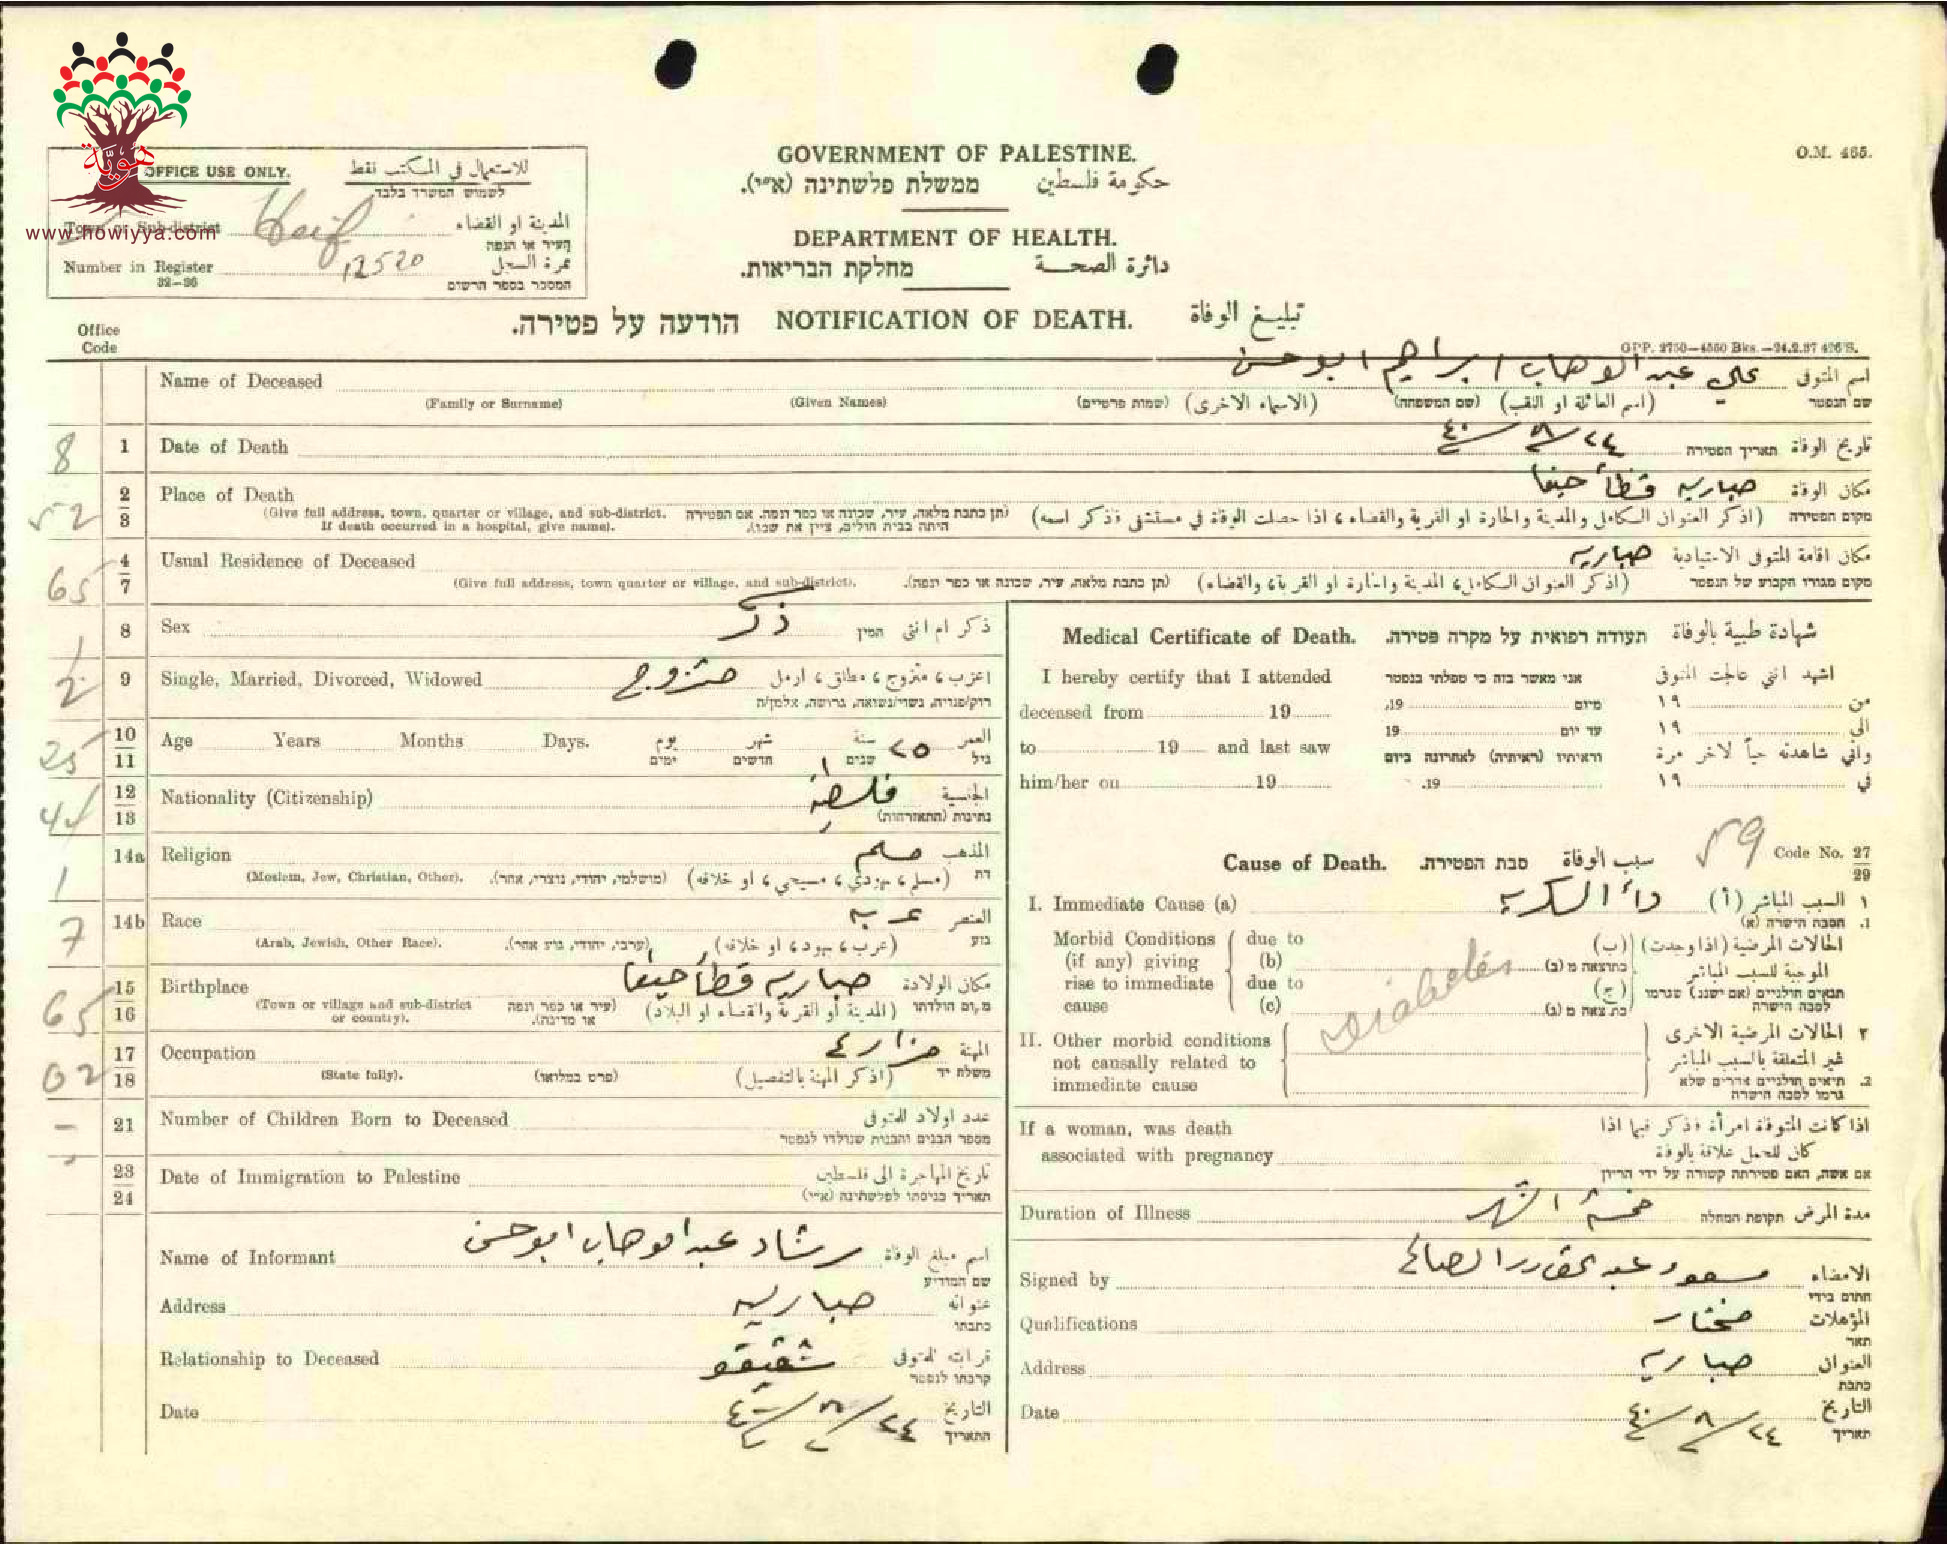 هوية
www.howiyya.com
OFFICE USE ONLY. للاستعمال في المكتب فقط
לשמוש המשרד בלבד
Town or Sub-district Haifa المدينة او القضاء
העיר או הנפה
Number in Register 12520 نمرة السجل
32—36 המספר בספר הרשום
GOVERNMENT OF PALESTINE.
ממשלת פלשתינה (א״י). حكومة فلسطين
DEPARTMENT OF HEALTH.
מחלקת הבריאות. دائرة الصحة
O.M. 465.
הודעה על פטירה. NOTIFICATION OF DEATH. تبليغ الوفاة
Office
Code
GPP. 2750—4550 Bks.—24.2.37 426/S.
Name of Deceased علي عبد الوهاب ابراهيم ابو حسن اسم المتوفى
(Family or Surname) (Given Names) (שמות פרטיים) (الاسماء الاخرى) (שם המשפחה) (اسم العائلة او اللقب) שם הנפטר
8 1 Date of Death ٢٤/٨/٤٠ תאריך הפטירה تاريخ الوفاة
52 2 Place of Death صباريه قضأ حيفا مكان الوفاة
3 (Give full address, town, quarter or village, and sub-district. (תן כתבת מלאה, עיר, שכונה או כפר ונפה. אם הפטירה (اذكر العنوان الكامل والمدينة والحارة او القرية والقضاء، اذا حصلت الوفاة في مستشفى فذكر اسمه) מקום הפטירה
If death occurred in a hospital, give name). היתה בבית חולים, ציין את שמו).
65 4 Usual Residence of Deceased صباريه مكان اقامة المتوفى الاعتيادية
7 (Give full address, town quarter or village, and sub-district). (תן כתבת מלאה, עיר, שכונה או כפר ונפה). (اذكر العنوان الكامل، المدينة والحارة او القرية، والقضاء) מקום מגורו הקבוע של הנפטר
1 8 Sex ذكر המין ذكر ام انثى
2 9 Single, Married, Divorced, Widowed متزوج اعزب، متزوج، مطلق، ارمل
רוק/פנויה, נשוי/נשואה, גרושה, אלמן/ה
25 10 Age Years Months Days. يوم شهر سنة ٢٥ العمر
11 ימים חדשים שנים גיל
44 12 Nationality (Citizenship) الجنسية
13 נתינות (התאזרחות)
1 14a Religion مسلم المذهب
(Moslem, Jew, Christian, Other). (מושלמי, יהודי, נוצרי, אחר). (مسلم، يهودي، مسيحي، او خلافه) דת
7 14b Race عربي العنصر
(Arab, Jewish, Other Race). (ערבי, יהודי, גזע אחר). (عرب، يهود، او خلافه) גזע
65 15 Birthplace صباريه قضأ حيفا مكان الولادة
16 (Town or village and sub-district (עיר או כפר ונפה (المدينة او القرية والقضاء او البلاد) מקום הולדתו
or country). או מדינה).
02 17 Occupation مزارع المهنة
18 (State fully). (פרט במלואו) (اذكر المهنة بالتفصيل) משלח יד
- 21 Number of Children Born to Deceased عدد اولاد للمتوفى
מספר הבנים והבנות שנולדו לנפטר
23 Date of Immigration to Palestine تاريخ المهاجرة الى فلسطين
24 תאריך כניסתו לפלשתינה (א״י)
Name of Informant رشاد عبد الوهاب ابو حسن اسم مبلغ الوفاة
שם המודיע
Address صباريه عنوانه
כתבתו
Relationship to Deceased شقيقه قرابته للمتوفى
קרבתו לנפטר
Date ٢٤/٨/٤٠ التاريخ
התאריך
Medical Certificate of Death. תעודה רפואית על מקרה פטירה. شهادة طبية بالوفاة
I hereby certify that I attended אני מאשר בזה כי טפלתי בנפטר اشهد انني عالجت المتوفى
deceased from 19 מיום 19, من ١٩
to 19 and last saw עד יום 19 الى ١٩
וראיתיו (ראיתיה) לאחרונה ביום واني شاهدته حياً لاخر مرة
him/her on 19 19. في ١٩
Cause of Death. סבת הפטירה. سبب الوفاة 59 Code No. 27
29
I. Immediate Cause (a) دأ السكريه السبب المباشر (أ) ١
הסבה הישרה (א) 1.
Morbid Conditions due to (ب) الحالات المرضية (اذا وجدت)
(if any) giving (b) כתוצאה מ (ב) الموجبة للسبب المباشر
rise to immediate due to diabetes (ج) תנאים חולניים (אם ישנם) שגרמו
cause (c) כתוצאה מ (ג) לסבה הישרה
II. Other morbid conditions الحالات المرضية الاخرى ٢
not causally related to غير المتعلقة بالسبب المباشر
immediate cause תנאים חולניים אחרים שלא 2.
גרמו לסבה הישרה
If a woman, was death اذا كانت المتوفاة امرأة فذكر فيما اذا
associated with pregnancy كان للحمل علاقة بالوفاة
אם אשה, האם פטירתה קשורה על ידי הריון
Duration of Illness خمسة اشهر תקופת המחלה مدة المرض
Signed by مسعود عبد القادر الصالح الامضاء
חתום בידי
Qualifications مختار المؤهلات
תאר
Address صباريه العنوان
כתבת
Date ٢٤/٨/٤٠ التاريخ
תאריך